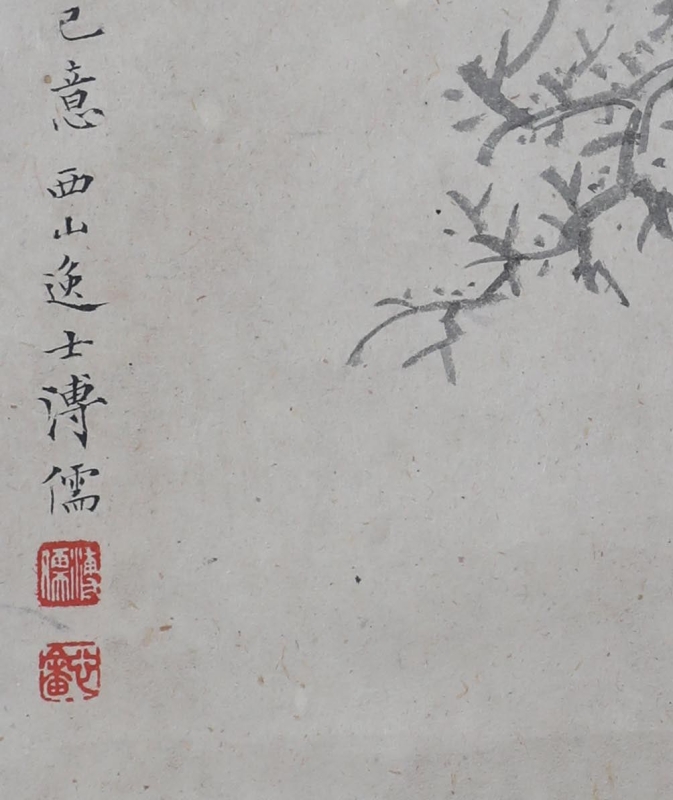 己意 西山逸士溥儒
溥儒
心畬